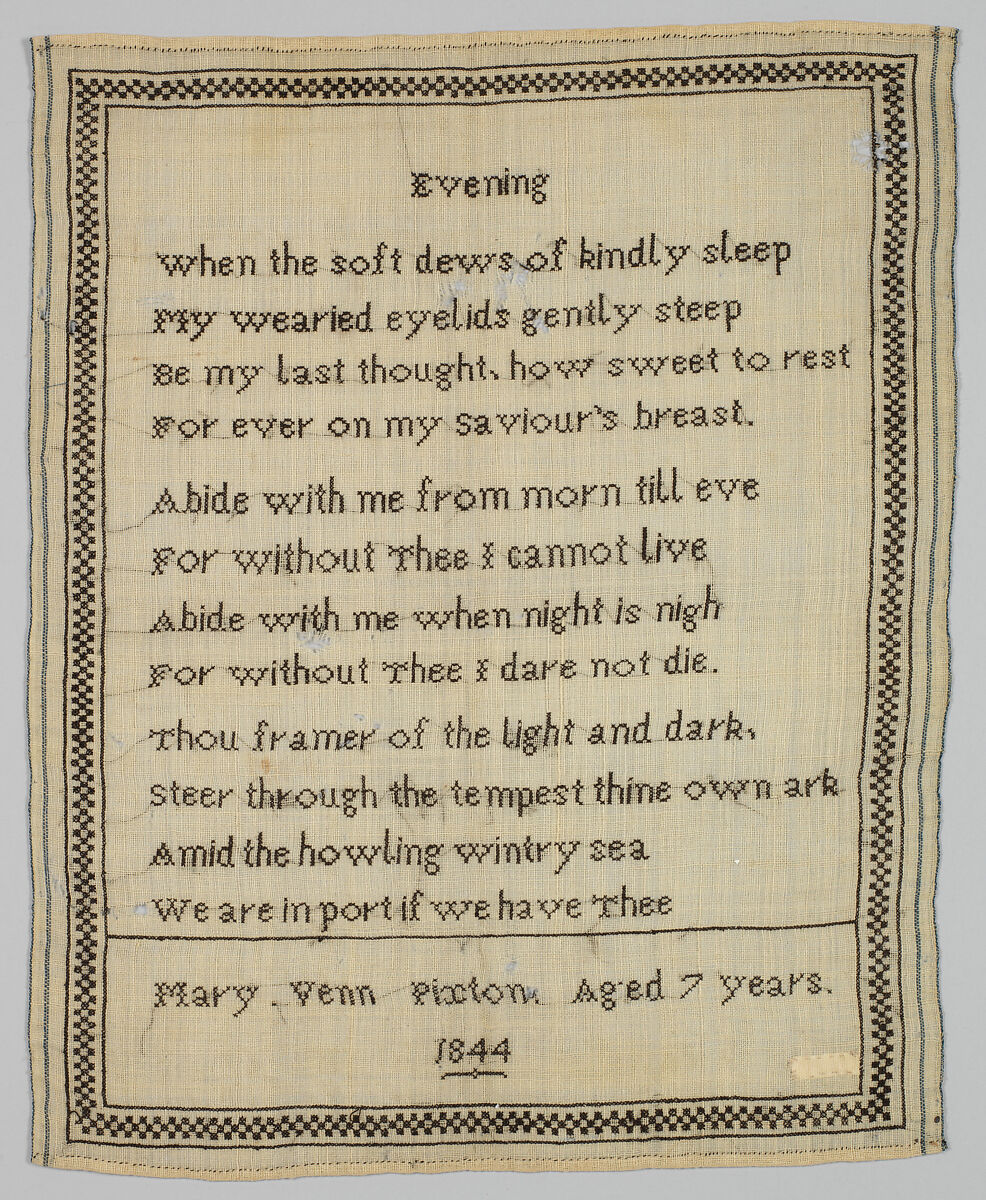 Evening
When the soft dews of kindly sleep
My wearied eyelids gently steep
Be my last thought, how sweet to rest
For ever on my Saviour's breast.
Abide with me from morn till eve
For without Thee I cannot live
Abide with me when night is nigh
For without Thee I dare not die.
Thou framer of the light and dark,
Steer through the tempest thine own ark
Amid the howling wintry sea
We are in port if we have Thee
Mary. Venn Pixton. Aged 7 years.
1844